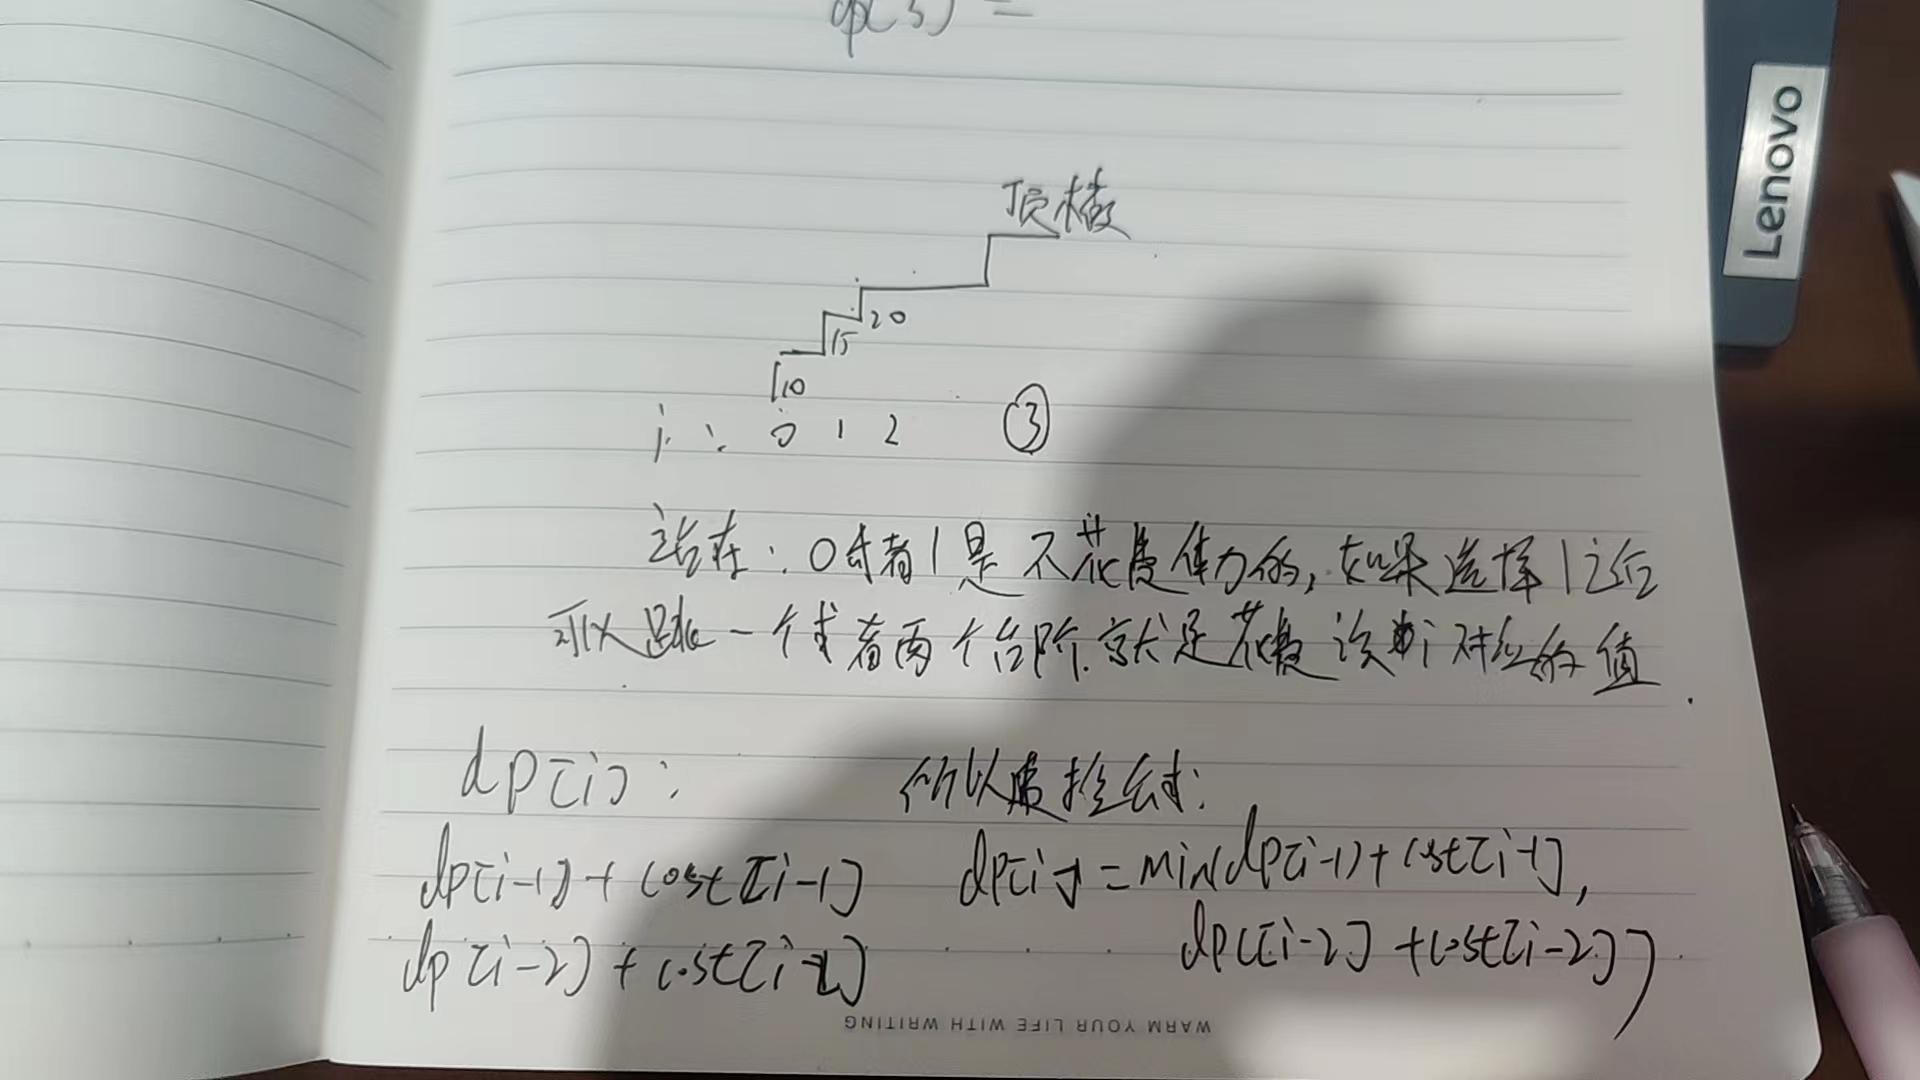 dp(3) =
顶楼
20
15
10
i: 0 1 2 ③
站在: 0或者1是不花费体力的, 如果选择1之后
可以跳一个或者两个台阶. 就是花费该i对应的值.
dp[i]: 所以递推公式:
dp[i-1] + cost[i-1] dp[i] = min(dp[i-1] + cost[i-1],
dp[i-2] + cost[i-2] dp[i-2] + cost[i-2])
WARM YOUR LIFE WITH WRITING
Lenovo